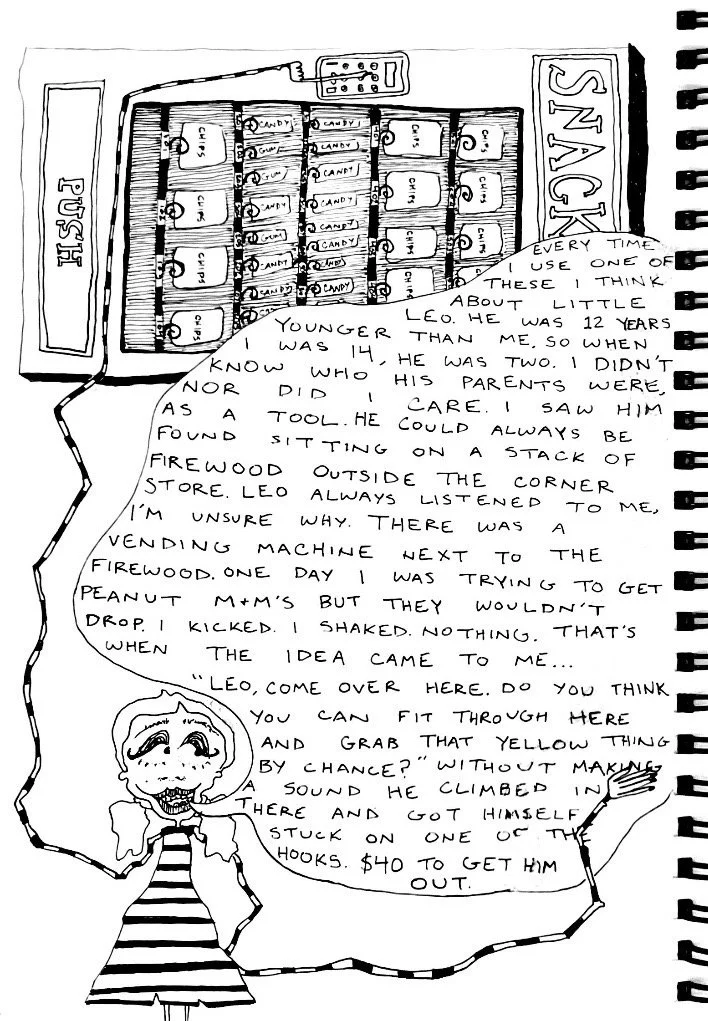 SNACK
PUSH
CHIPS
CHIPS
CHIPS
CHIPS
CANDY
GUM
GUM
CANDY
GUM
CANDY
CANDY
CANDY
CANDY
CANDY
CANDY
CANDY
CANDY
CANDY
CHIPS
CHIPS
CHIPS
CHIPS
CHIPS
CHIPS
CHIPS
EVERY TIME
I USE ONE OF
THESE I THINK
ABOUT LITTLE
LEO. HE WAS 12 YEARS
YOUNGER THAN ME. SO WHEN
I WAS 14, HE WAS TWO. I DIDN'T
KNOW WHO HIS PARENTS WERE,
NOR DID I CARE. I SAW HIM
AS A TOOL. HE COULD ALWAYS BE
FOUND SITTING ON A STACK OF
FIREWOOD OUTSIDE THE CORNER
STORE. LEO ALWAYS LISTENED TO ME,
I'M UNSURE WHY. THERE WAS A
VENDING MACHINE NEXT TO THE
FIREWOOD. ONE DAY I WAS TRYING TO GET
PEANUT M+M'S BUT THEY WOULDN'T
DROP. I KICKED. I SHAKED. NOTHING. THAT'S
WHEN THE IDEA CAME TO ME...
"LEO, COME OVER HERE. DO YOU THINK
YOU CAN FIT THROUGH HERE
AND GRAB THAT YELLOW THING
BY CHANCE?" WITHOUT MAKING
A SOUND HE CLIMBED IN
THERE AND GOT HIMSELF
STUCK ON ONE OF THE
HOOKS. $40 TO GET HIM
OUT.